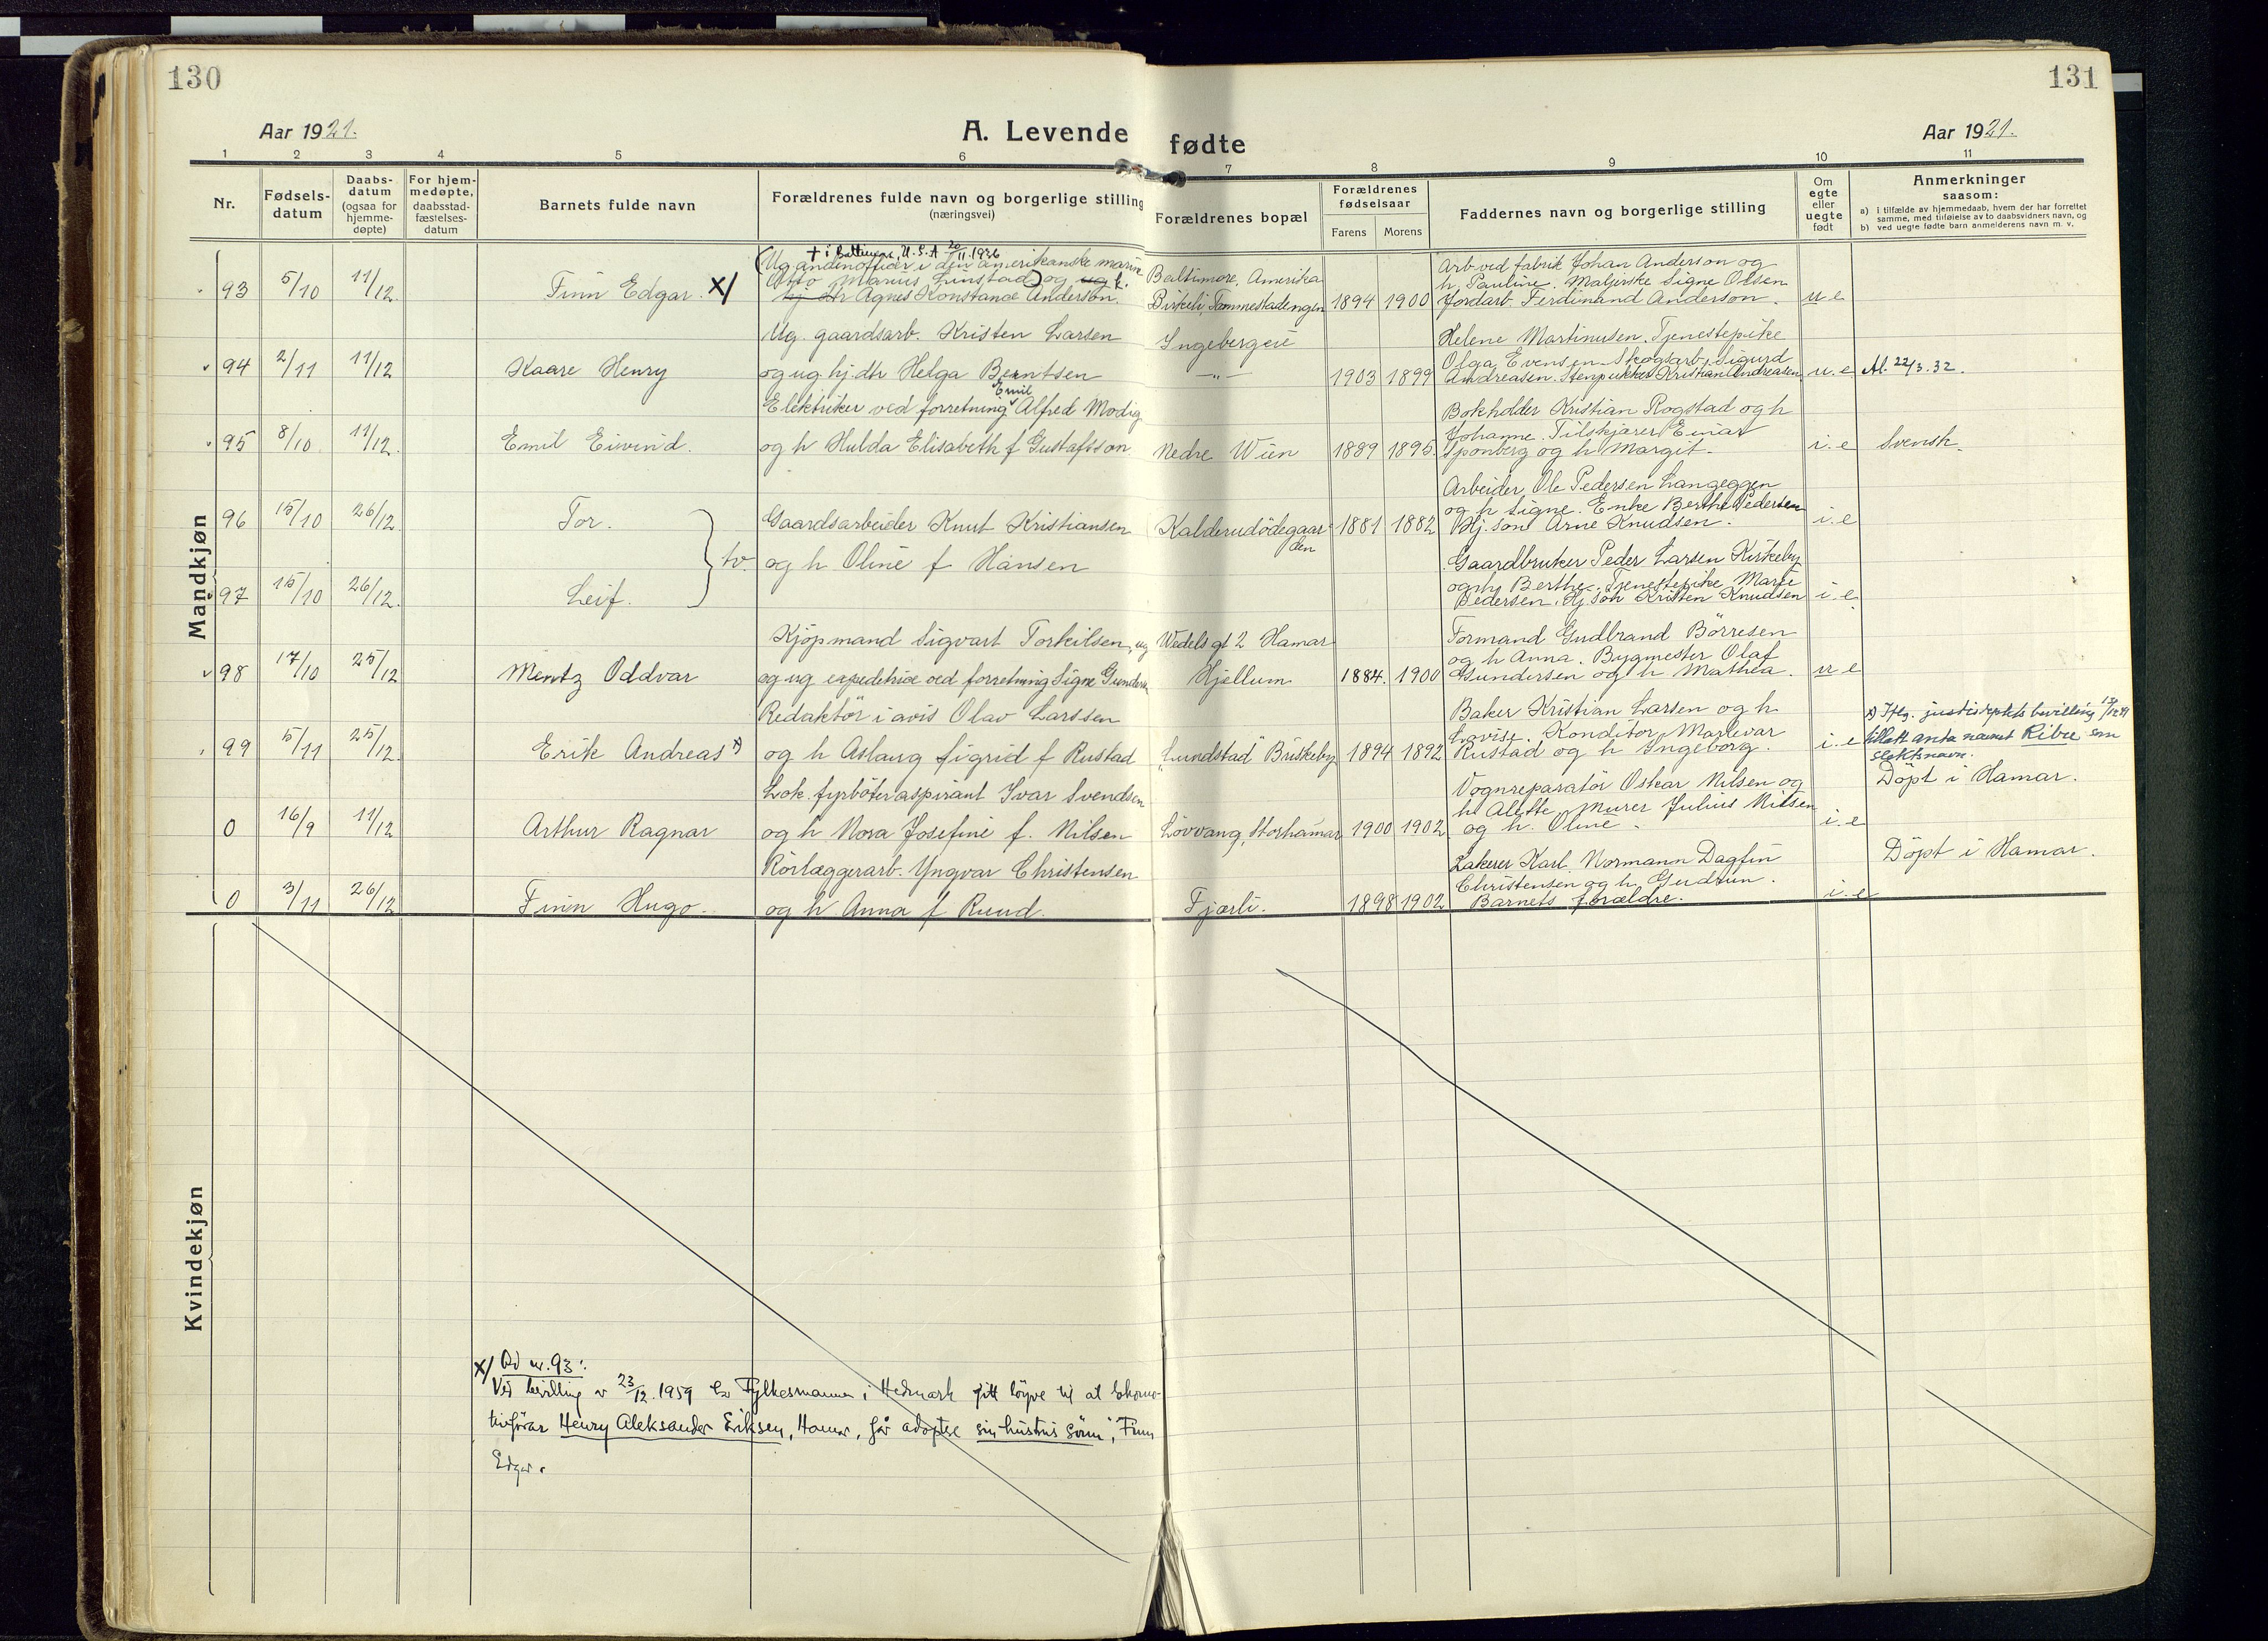 130
131
Aar 1921.
A. Levende fødte
Aar 1921.
1 2 3 4 5 6 7 8 9 10 11
Nr.
Fødsels-
datum
Daabs-
datum
(ogsaa for
hjemme-
døpte)
For hjem-
medøpte,
daabsstad-
fæstelses-
datum
Barnets fulde navn
Forældrenes fulde navn og borgerlige stilling
(næringsvei)
Forældrenes bopæl
Forældrenes
fødselsaar
Farens Morens
Faddernes navn og borgerlige stilling
Om
egte
eller
uegte
født
Anmerkninger
saasom:
a) i tilfælde av hjemmedaab, hvem der har forrettet
samme, med tilføielse av to daabsvidners navn, og
b) ved uegte fødte barn anmelderens navn m. v.
Mandkjøn
93 5/10 11/12. Finn Edgar. X/
+ i Baltimore, U.S.A 20/11.1936
(Ug andenofficer i den amerikanske marine
Otto Marius Linstad) og ug k.
hj. dtr Agnes Konstance Anderson.
Baltimore, Amerika
Birkeli, Tommestadengen 1894 1900
Arb ved fabrik Johan Anderson og
h. Pauline. Malerske Signe Olsen
Jordarb. Ferdinand Anderson. u e
94 2/11 11/12 Kaare Henry
Ug. gaardsarb. Kristen Larsen
og ug. hj. dtr Helga Berntsen
Ingebergeie
—"— 1903 1899
Helene Martinusen. Tjenestepike
Olga Evensen. Skogsarb. Sigurd
Andreasen. Stenpukker Kristian Andreasen. u. e At. 22/3. 32.
95 8/10 11/12. Emil Eivind.
Elektriker ved forretning Emil Alfred Modig
og h Hulda Elisabeth f Gustafsson.
Nedre Wien 1889 1895.
Bokholder Kristian Rogstad og h
Johanne. Tilskjærer Einar
Sponberg og h Margit. i. e Svensk.
96 15/10 26/12. Tor.
Gaardsarbeider Knut Kristiansen
og h Oline f Hansen
tv.
Kalderudødegaar
den 1881 1882
Arbeider Ole Pedersen Langeggen
og h Signe. Enke Berthe Pedersen
Hj. søn Arne Knudsen. i. e
97 15/10 26/12. Leif.
Gaardbruker Peder Larsen Kirkeby
og h Berthe. Tjenestepike Marie
Pedersen. Hj. søn Kristen Knudsen i. e
98 17/10 25/12 Mentz Oddvar
Kjöpmand Sigvart Torkilsen, ug
og ug expeditrice ved forretning Signe Gunders
Wedels gt 2 Hamar
Hjellum 1884. 1900
Formand Gudbrand Börresen
og h Anna. Bygmester Olaf
Gundersen og h Mathea. u e
99 5/11 25/12. Erik Andreas x)
Redaktör i avis Olav Larssen
og h Aslaug Sigrid f Rustad
"Lundstad" Briskeby 1894 1892
Baker Kristian Larsen og h
Lovise. Konditor Marlevar
Rustad og h Ingeborg. i. e
x) Iflg. justisdeptets bevilling
tillatt anta navnet Ribu som
slektsnavn.
0 16/9 11/12 Arthur Ragnar
Lok. fyrböteraspirant Ivar Svendsen
og h Nora Josefine f. Nilsen
Lövvang, Storhamar 1900 1902
Vognreparatör Oskar Nilsen og
h Alette. Murer Julius Nilsen
og h. Oline. i. e Döpt i Hamar.
0 3/11 26/12 Finn Hugo.
Rörlæggerarb. Yngvar Christensen
og h Anna f Ruud.
Fjærli. 1898 1902
Lakerer Karl Normann Dagfin
Christensen og h. Gudrun.
Barnets forældre. i. e Döpt i Hamar.
Kvindekjøn
X/ Ad nr. 93:
Ved bevilling v 23/12. 1959 har Fylkesmannen i Hedmark gitt löyve til at lokomo-
tivförer Henry Aleksander Eriksen, Hamar, får adoptere sin hustrus sönn, Finn
Edgar.